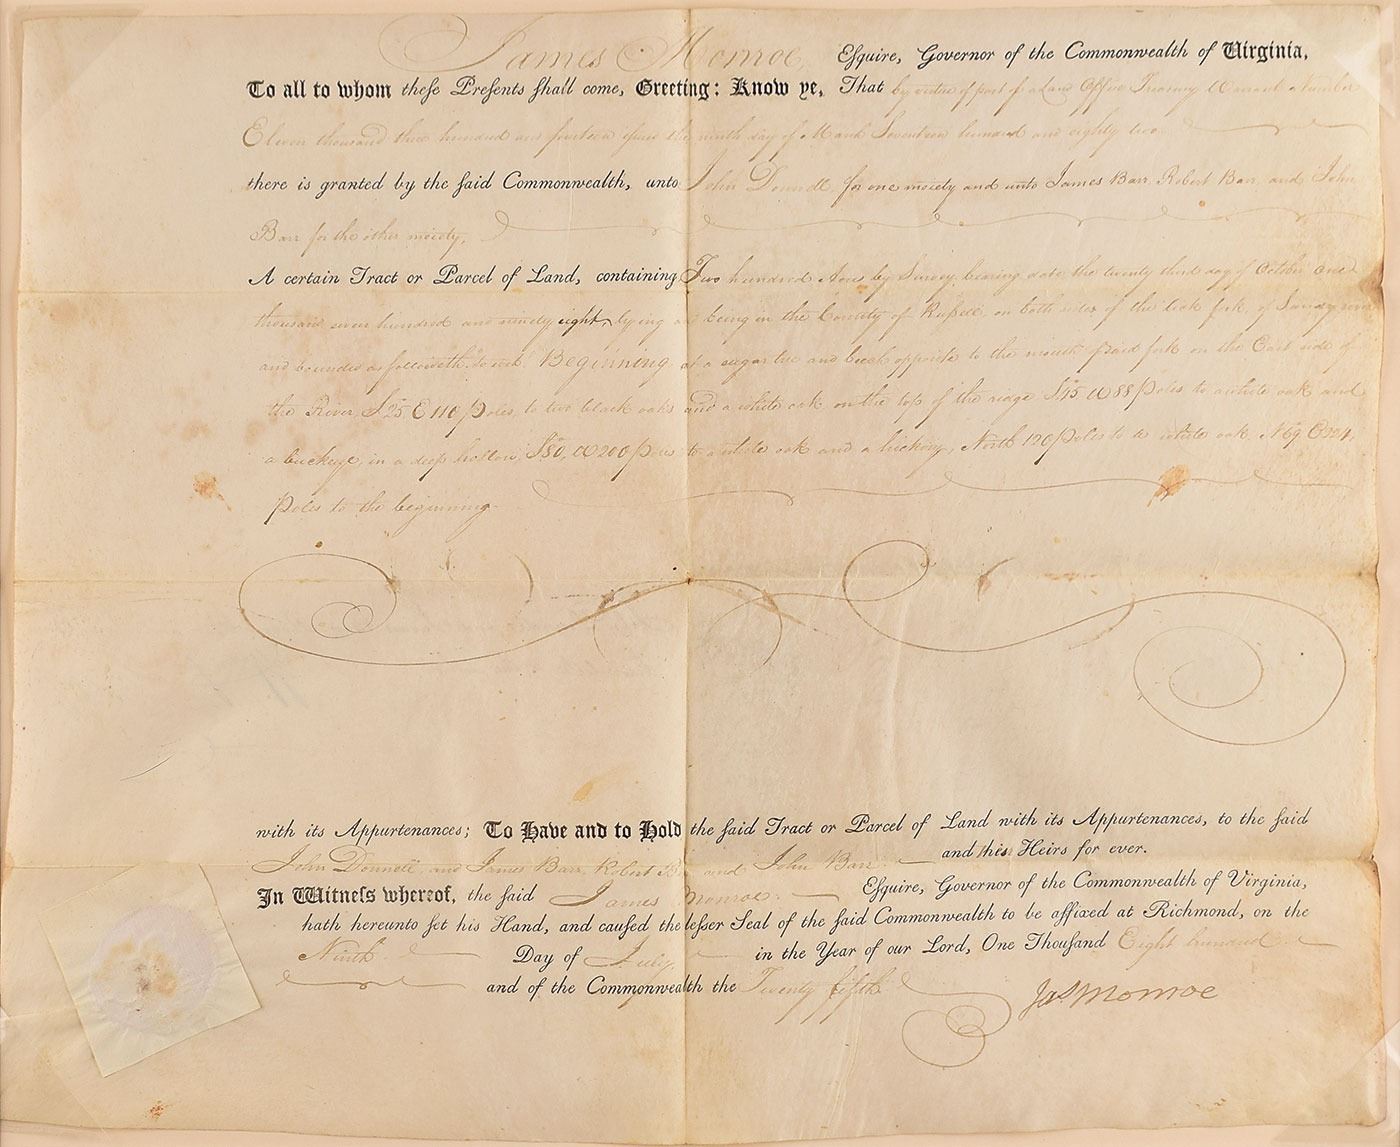 James Monroe, Esquire, Governor of the Commonwealth of Virginia,
To all to whom these Presents shall come, Greeting: Know ye, That by virtue of part of a Land Office Treasury Warrant Number
Eleven thousand three hundred and fourteen the ninth day of March Seventeen hundred and eighty two
there is granted by the said Commonwealth, unto John Donnell for one moiety and unto James Barr, Robert Barr, and John
Barr for the other moiety,
A certain Tract or Parcel of Land, containing Two hundred Acres by Survey, bearing date the twenty third day of October one
thousand seven hundred and ninety eight, lying and being in the County of Russell, on both sides of the fork, of Sandy river
and bounded as followeth, to wit Beginning at a sugar tree and beech opposite to the mouth of said fork on the East side of
the River, S25 E 110 poles, to two black oaks and a white oak on the top of the ridge S45 W 88 poles to a white oak and
a buckeye, in a deep hollow, S80, W 200 poles to a white oak and a hickory, North 120 poles to a white oak, N69 E224,
Poles to the beginning.
with its Appurtenances; To Have and to Hold the said Tract or Parcel of Land with its Appurtenances, to the said
John Donnell, and James Barr, Robert Barr and John Barr and their Heirs for ever.
In Witness whereof, the said James Monroe Esquire, Governor of the Commonwealth of Virginia,
hath hereunto set his Hand, and caused the lesser Seal of the said Commonwealth to be affixed at Richmond, on the
Ninth Day of July in the Year of our Lord, One Thousand Eight hundred
and of the Commonwealth the Twenty fifth
Jas Monroe